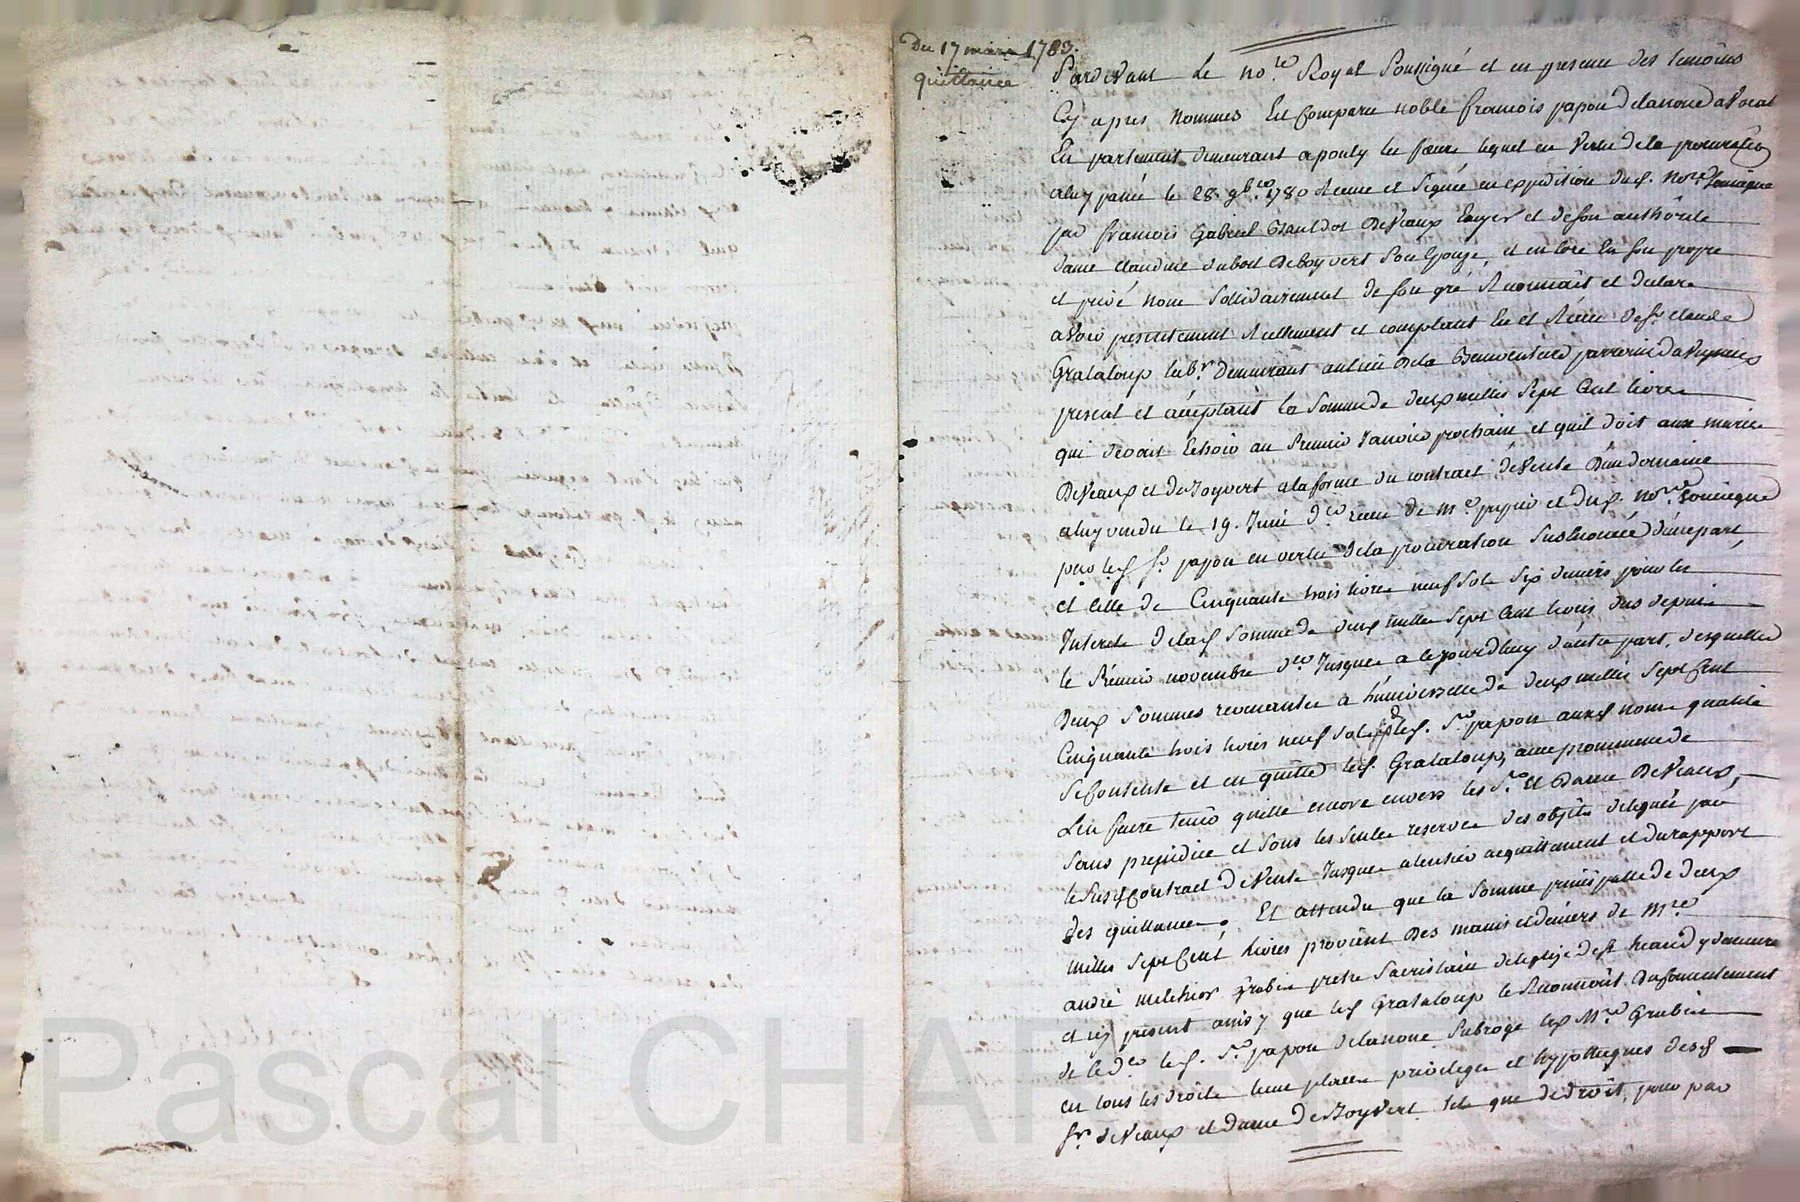 Du 17 mars 1783.
quittance
Pardevant Le no.re Royal Soussigné et en presence des temoins
Cy apres nommés Est Comparu noble francois japon delanoue avocat
En parlement demeurant a pouly les feurs lequel en Vertu de la procuration
a luy passée le 28. 9b.re 1780 Recue et Signée en expedition dud. No.re Soussigné
par francois Gabriel DeVeaux Ecuyer et de son authorité
dame claudine dubost DeBoyvert Son Epouse, et encore En son propre
et privé nom Sollidairement de son gré Reconnait et declare
avoir presentement Reellement et comptant Eu et Recu de Sr. claude
Grataloup lab.r demeurant au lieu De la parroisse
present et acceptant la Somme de deux milles Sept Cent livres
qui devoit Echoir au Premier Janvier prochain et quil doit aux mariés
DeVeaux et deBoyvert a la forme du contract deVente Dun domaine
a luy vendu le 19. Juin d.er recu de M.e et dud. No.re Soussigné
par led. Sr. japon en vertu de la procuration Susenoncée dune part,
et celle de Cinquante trois livres neuf Sols Six deniers pour les
Interets de lad. Somme de deux milles Sept Cent livres dus depuis
le Premier novembre d.er Jusques a ce jourdhuy dautre part, desquelles
Deux Sommes revenantes a luniverselle de deux milles Sept Cent
Cinquante trois livres neuf Sols led. Sr. japon auxd. noms qualité
Se Contente et en quitte led. Grataloup, avec promesse de
Len faire tenir quitte encore envers les Sr. et Dame DeVeaux,
Sans prejudice et Sous les Seules reserves des objets delegués par
le Susd. Contract deVente Jusques a lentier acquittement et du rapport
des quittances. Et attendu que la Somme principalle de deux
milles Sept Cent livres provient Des mains et deniers de M.re
andré melchior grubis pretre Sacristain de leglise de St. heand y demeurant
et icy present ainsy que led. Grataloup le Reconnoit Du Consentement
de ce d.er led. Sr. japon delanoue Subroge led. M.re Grubis
en tous les droits lieu place privileges et hypotheques desd.
Sr. deVeaux et dame de Boyvert tels que de droit, pour par
Pascal